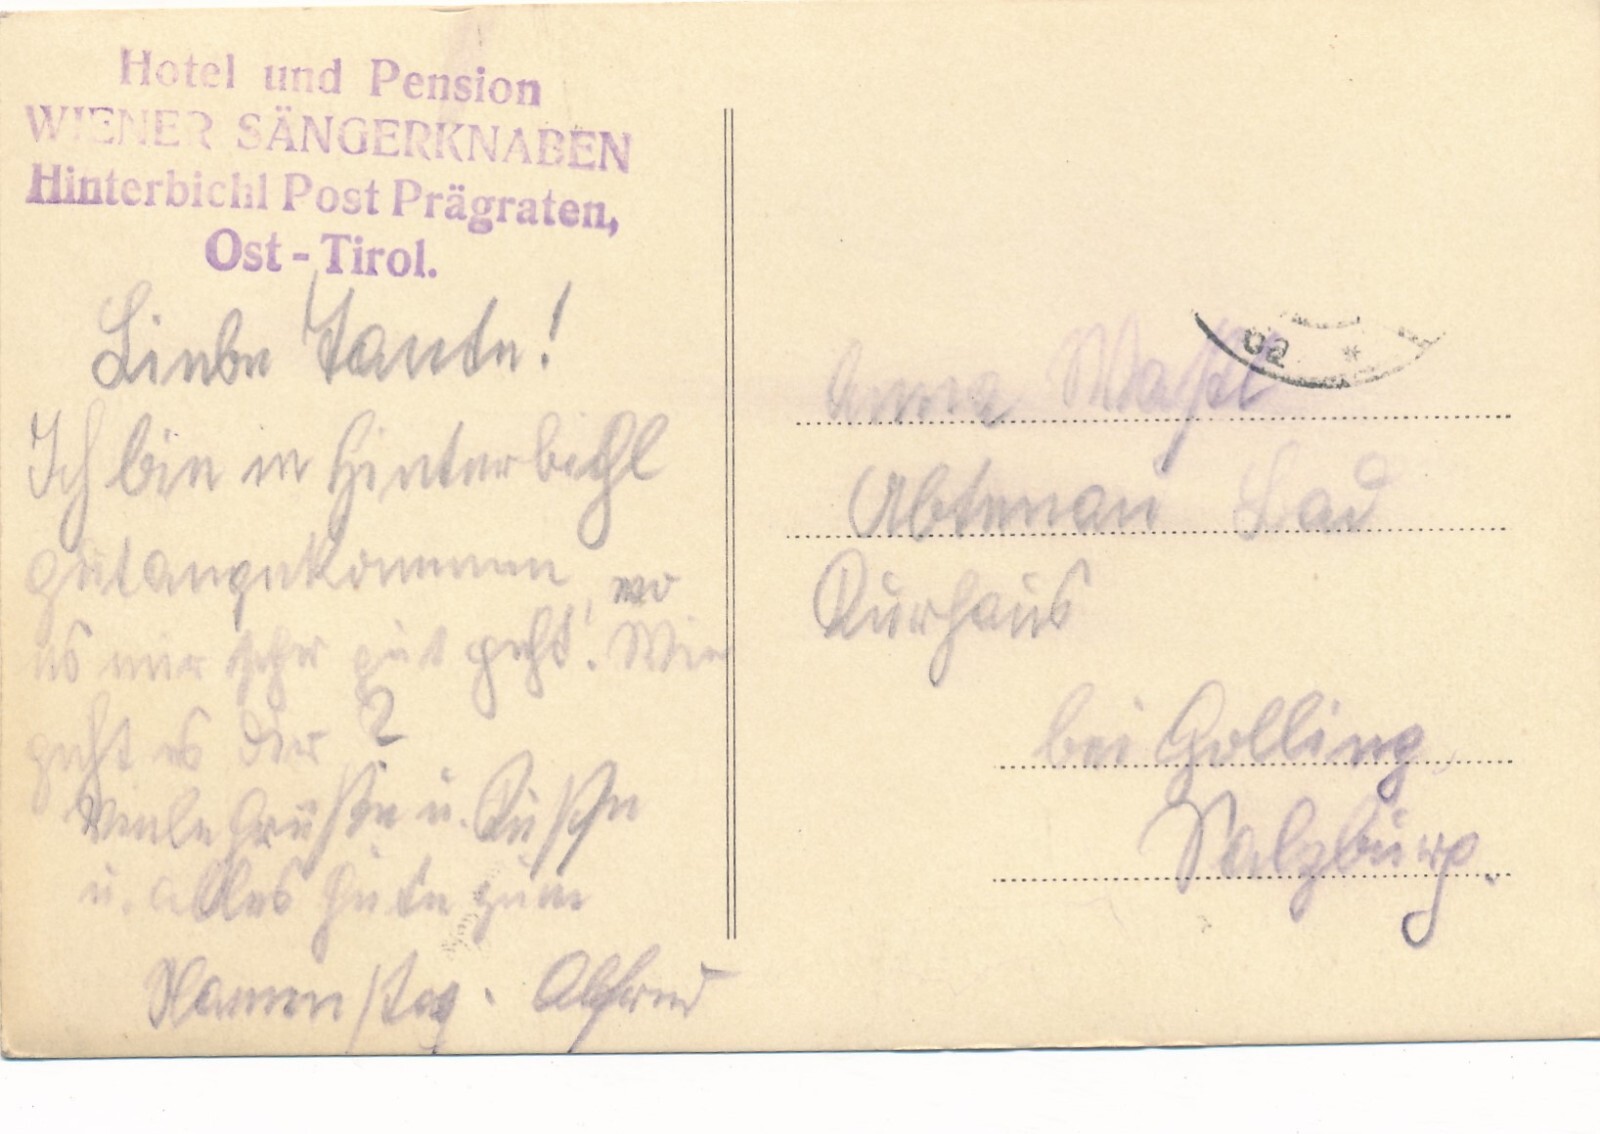 Hotel und Pension
WIENER SÄNGERKNABEN
Hinterbichl Post Prägraten,
Ost-Tirol.
Liebe Tante!
Ich bin in Hinterbichl
gutangekommen, wo
es mir sehr gut geht! Wie
geht es dir?
Viele Grüße u. Küsse
u. alles Gute zum
Namenstag. Alfred
Anna
Abtenau Bad
Kurhaus
bei Golling,
Salzburg.